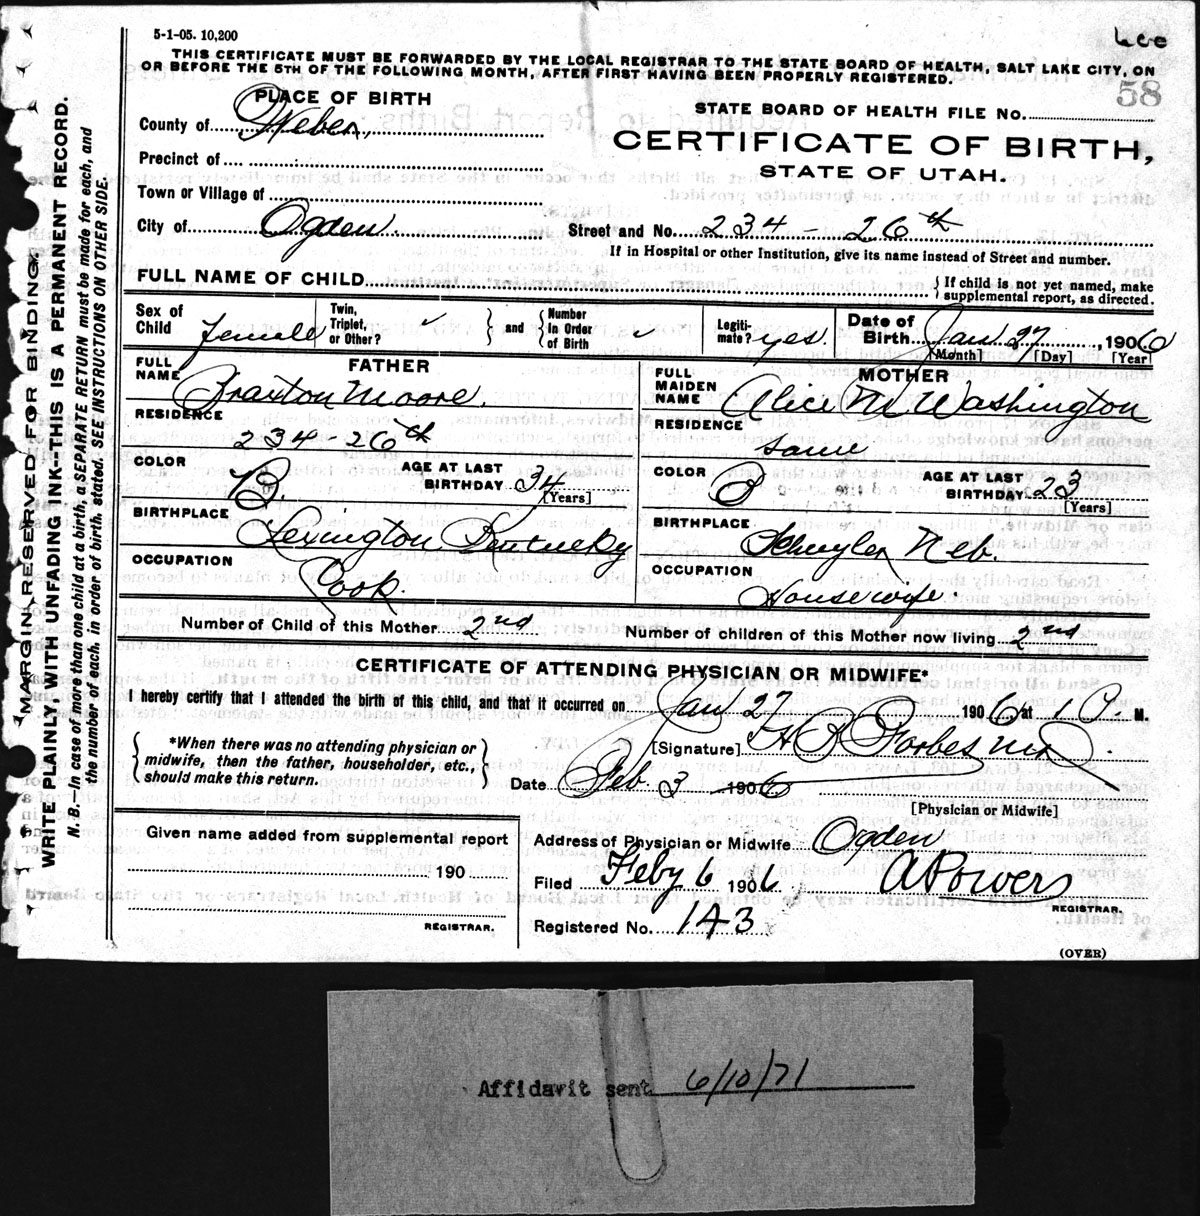 5-1-05. 10,200
THIS CERTIFICATE MUST BE FORWARDED BY THE LOCAL REGISTRAR TO THE STATE BOARD OF HEALTH, SALT LAKE CITY, ON
OR BEFORE THE 5TH OF THE FOLLOWING MONTH, AFTER FIRST HAVING BEEN PROPERLY REGISTERED.
58
MARGIN RESERVED FOR BINDING.
WRITE PLAINLY, WITH UNFADING INK--THIS IS A PERMANENT RECORD.
N. B.—In case of more than one child at a birth, a SEPARATE RETURN must be made for each, and
the number of each, in order of birth, stated. SEE INSTRUCTIONS ON OTHER SIDE.
PLACE OF BIRTH
County of Weber,
Precinct of
Town or Village of
City of Ogden.
STATE BOARD OF HEALTH FILE NO.
CERTIFICATE OF BIRTH,
STATE OF UTAH.
Street and No. 234 - 26th
If in Hospital or other Institution, give its name instead of Street and number.
FULL NAME OF CHILD
If child is not yet named, make
supplemental report, as directed.
Sex of Child Female
Twin, Triplet, or Other? ✓
and Number In Order of Birth
Legiti-mate? yes.
Date of Birth Jan 27, 1906
[Month] [Day] [Year]
FATHER
FULL NAME Braxton Moore.
RESIDENCE
234 - 26th
COLOR B.
AGE AT LAST BIRTHDAY 34
[Years]
BIRTHPLACE
Lexington Kentucky
OCCUPATION
Cook.
MOTHER
FULL MAIDEN NAME Alice M Washington
RESIDENCE
same
COLOR B
AGE AT LAST BIRTHDAY 23
[Years]
BIRTHPLACE
Schuyler Neb.
OCCUPATION
Housewife.
Number of Child of this Mother 2nd
Number of children of this Mother now living 2nd
CERTIFICATE OF ATTENDING PHYSICIAN OR MIDWIFE*
I hereby certify that I attended the birth of this child, and that it occurred on Jan 27 1906 at 1 P. M.
*When there was no attending physician or
midwife, then the father, householder, etc.,
should make this return.
[Signature] H R Forbes MD.
Date Feb 3 1906
[Physician or Midwife]
Given name added from supplemental report
190
REGISTRAR.
Address of Physician or Midwife Ogden
Filed Feby 6 1906 A Powers
REGISTRAR.
Registered No. 143
(OVER)
Affidavit sent 6/10/71